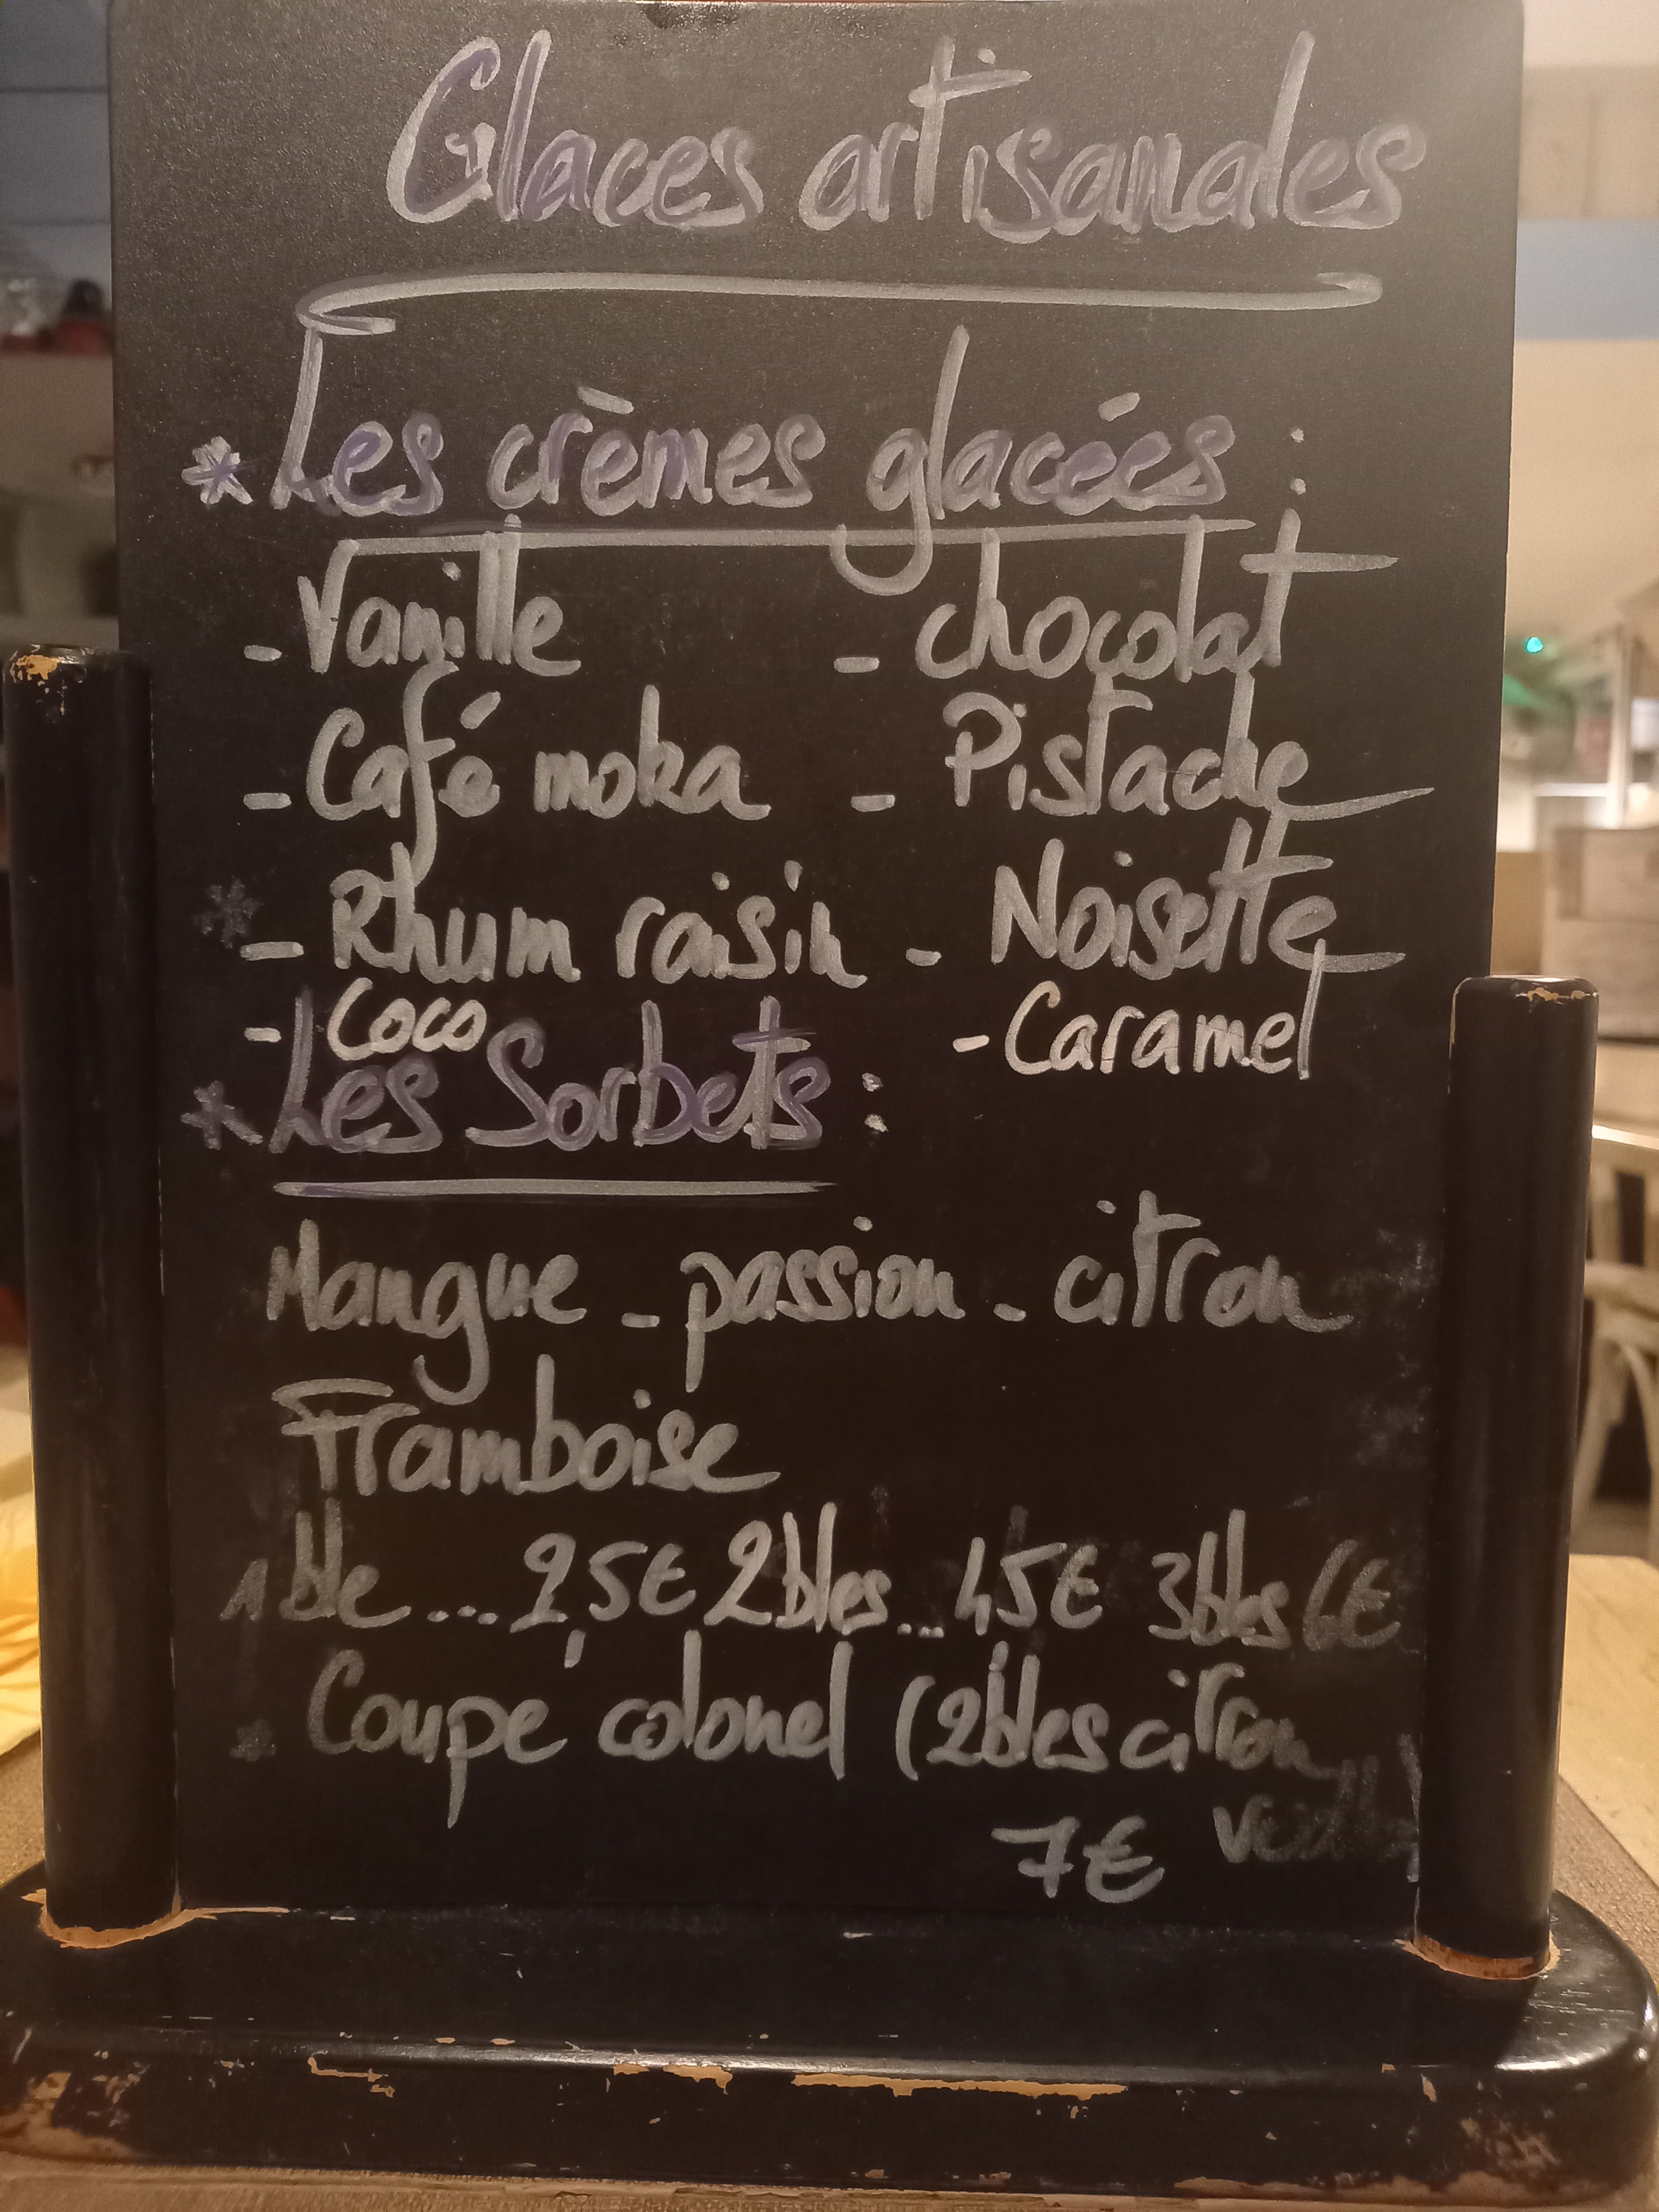 Glaces artisanales
* Les crèmes glacées :
- Vanille - chocolat
- Café moka - Pistache
- Rhum raisin - Noisette
- Coco - Caramel
* Les Sorbets :
Mangue - passion - citron
Framboise
1 ble ... 2,5€ 2 bles ... 4,5€ 3 bles 6€
Coupe colonel (2 bles citron
7€